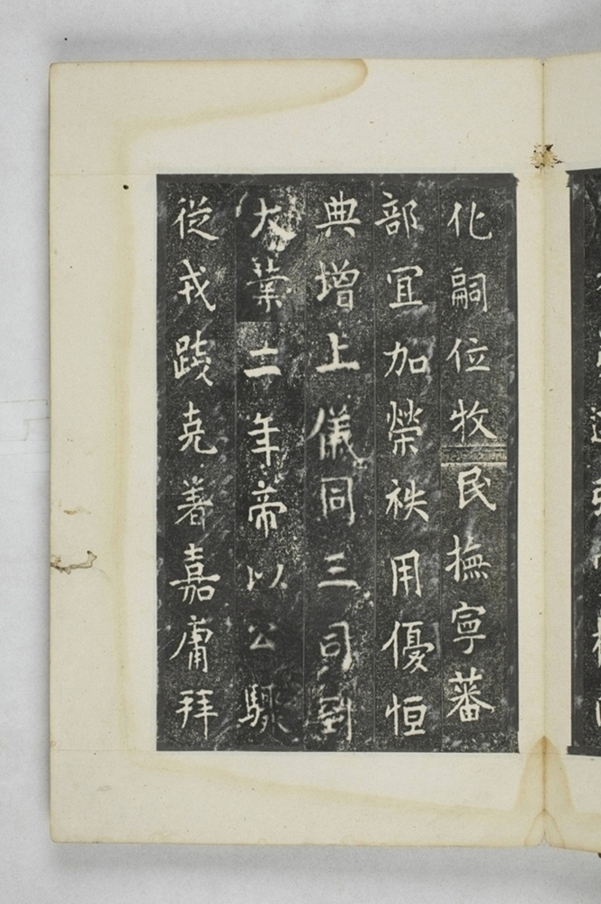 化嗣位牧民撫寧蕃
部宜加榮袟用優恒
典增上儀同三司到
大業二年帝以公驟
從戎踐克著嘉庸拜